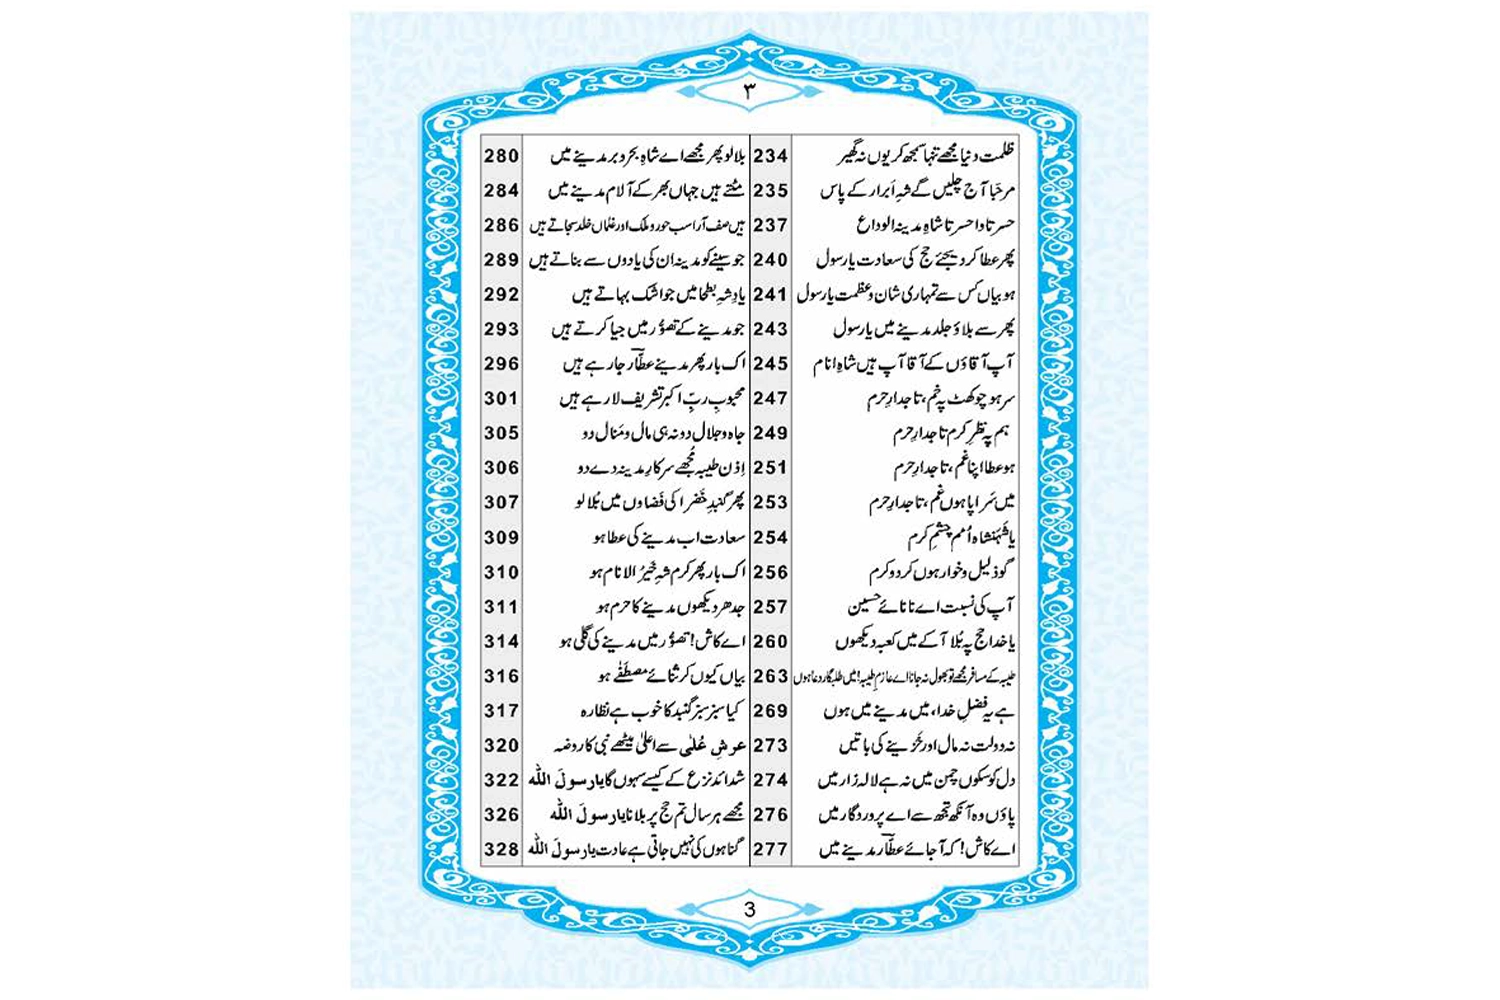 ۳
ظلمت دنیا مجھے تنہا سمجھ کر یوں نہ گھیر 234
مرحَبا آج چلیں گے شہِ اَبرار کے پاس 235
حسرتا واحسرتا شاہِ مدینہ الوداع 237
پھر عطا کر دیجئے حج کی سعادت یارسول 240
ہو بیاں کس سے تمہاری شان و عظمت یارسول 241
پھر سے بلاؤ جلد مدینے میں یارسول 243
آپ آقاؤں کے آقا آپ ہیں شاہِ انام 245
سر ہو چوکھٹ پہ خَم، تاجدارِ حرم 247
ہم پہ نظرِ کرم تاجدارِ حرم 249
ہو عطا اپنا غم، تاجدارِ حرم 251
میں سَراپا ہوں غم، تاجدارِ حرم 253
یا شَہَنشاہ اُمم چشمِ کرم 254
گو ذلیل و خوار ہوں کر دو کرم 256
آپ کی نسبت اے نانائے حسین 257
یا خدا حج پہ بُلا آ کے میں کعبہ دیکھوں 260
طیبہ کے مسافر مجھے تو بھول نہ جانا اے عازمِ طیبہ! میں طلبگارِ دعا ہوں 263
ہے یہ فضلِ خدا، میں مدینے میں ہوں 269
نہ دولت نہ مال اور خَزینے کی باتیں 273
دل کو سکوں چمن میں نہ ہے لالہ زار میں 274
پاؤں وہ آنکھ تجھ سے اے پروردگار میں 276
اے کاش! کہ آجائے عطّار مدینے میں 277
بلالو پھر مجھے اے شاہِ بحر و بر مدینے میں 280
مٹتے ہیں جہاں بھر کے آلام مدینے میں 284
ہیں صف آرا سب حور و ملک اور غلماں خلد سجاتے ہیں 286
جو سینے کو مدینہ ان کی یادوں سے بناتے ہیں 289
یادِ شہِ بطحا میں جو اشک بہاتے ہیں 292
جو مدینے کے تصوُّر میں جیا کرتے ہیں 293
اک بار پھر مدینے عطّار جا رہے ہیں 296
محبوبِ ربِّ اکبر تشریف لا رہے ہیں 301
جاہ و جلال دو نہ ہی مال و مَنال دو 305
اِذن طیبہ مُجھے سرکارِ مدینہ دے دو 306
پھر گنبدِ خَضرا کی فَضاوں میں بُلالو 307
سعادت اب مدینے کی عطا ہو 309
اک بار پھر کرم شہِ خَیرُ الانام ہو 310
جدھر دیکھوں مدینے کا حرم ہو 311
اے کاش! تصوُّر میں مدینے کی گلی ہو 314
بیاں کیوں کر ثنائے مصطَفٰے ہو 316
کیا سبز سبز گنبد کا خوب ہے نظارہ 317
عرشِ عُلٰی سے اعلٰی میٹھے نبی کا روضہ 320
شدائد نزع کے کیسے سہوں گا یارسولَ اللّٰہ 322
مجھے ہر سال تم حج پر بلانا یارسولَ اللّٰہ 326
گناہوں کی نہیں جاتی ہے عادت یارسولَ اللّٰہ 328
3